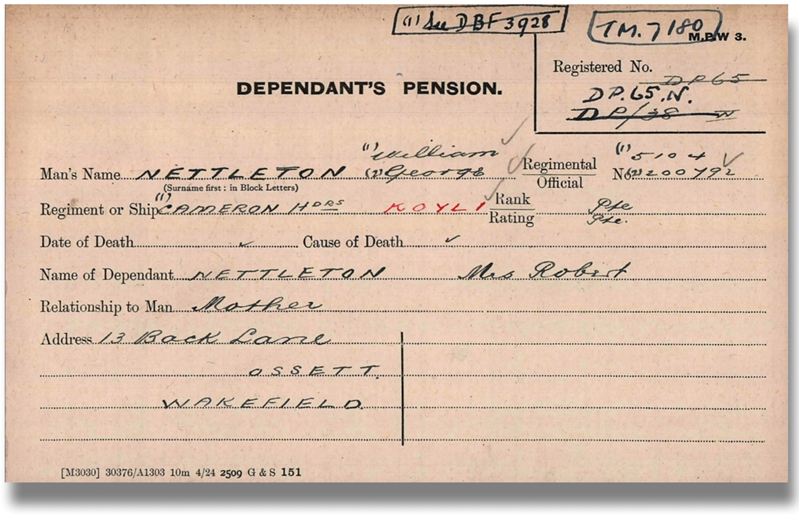 (1) See DBF 3928
TM. 7180
M.P.W 3.
DEPENDANT'S PENSION.
Registered No. DP65
DP.65.N.
DP/38 N
(1) William (1) 5104
Man's Name NETTLETON (2) George Regimental Official No. (2) 200792
(Surname first: in Block Letters)
Regiment or Ship (1) CAMERON HDRS KOYLI Rank Rating Pte Pte.
Date of Death Cause of Death
Name of Dependant NETTLETON Mrs Robert
Relationship to Man Mother
Address 13 Back Lane
OSSETT.
WAKEFIELD.
[M3030] 30376/A1303 10m 4/24 2509 G & S 151